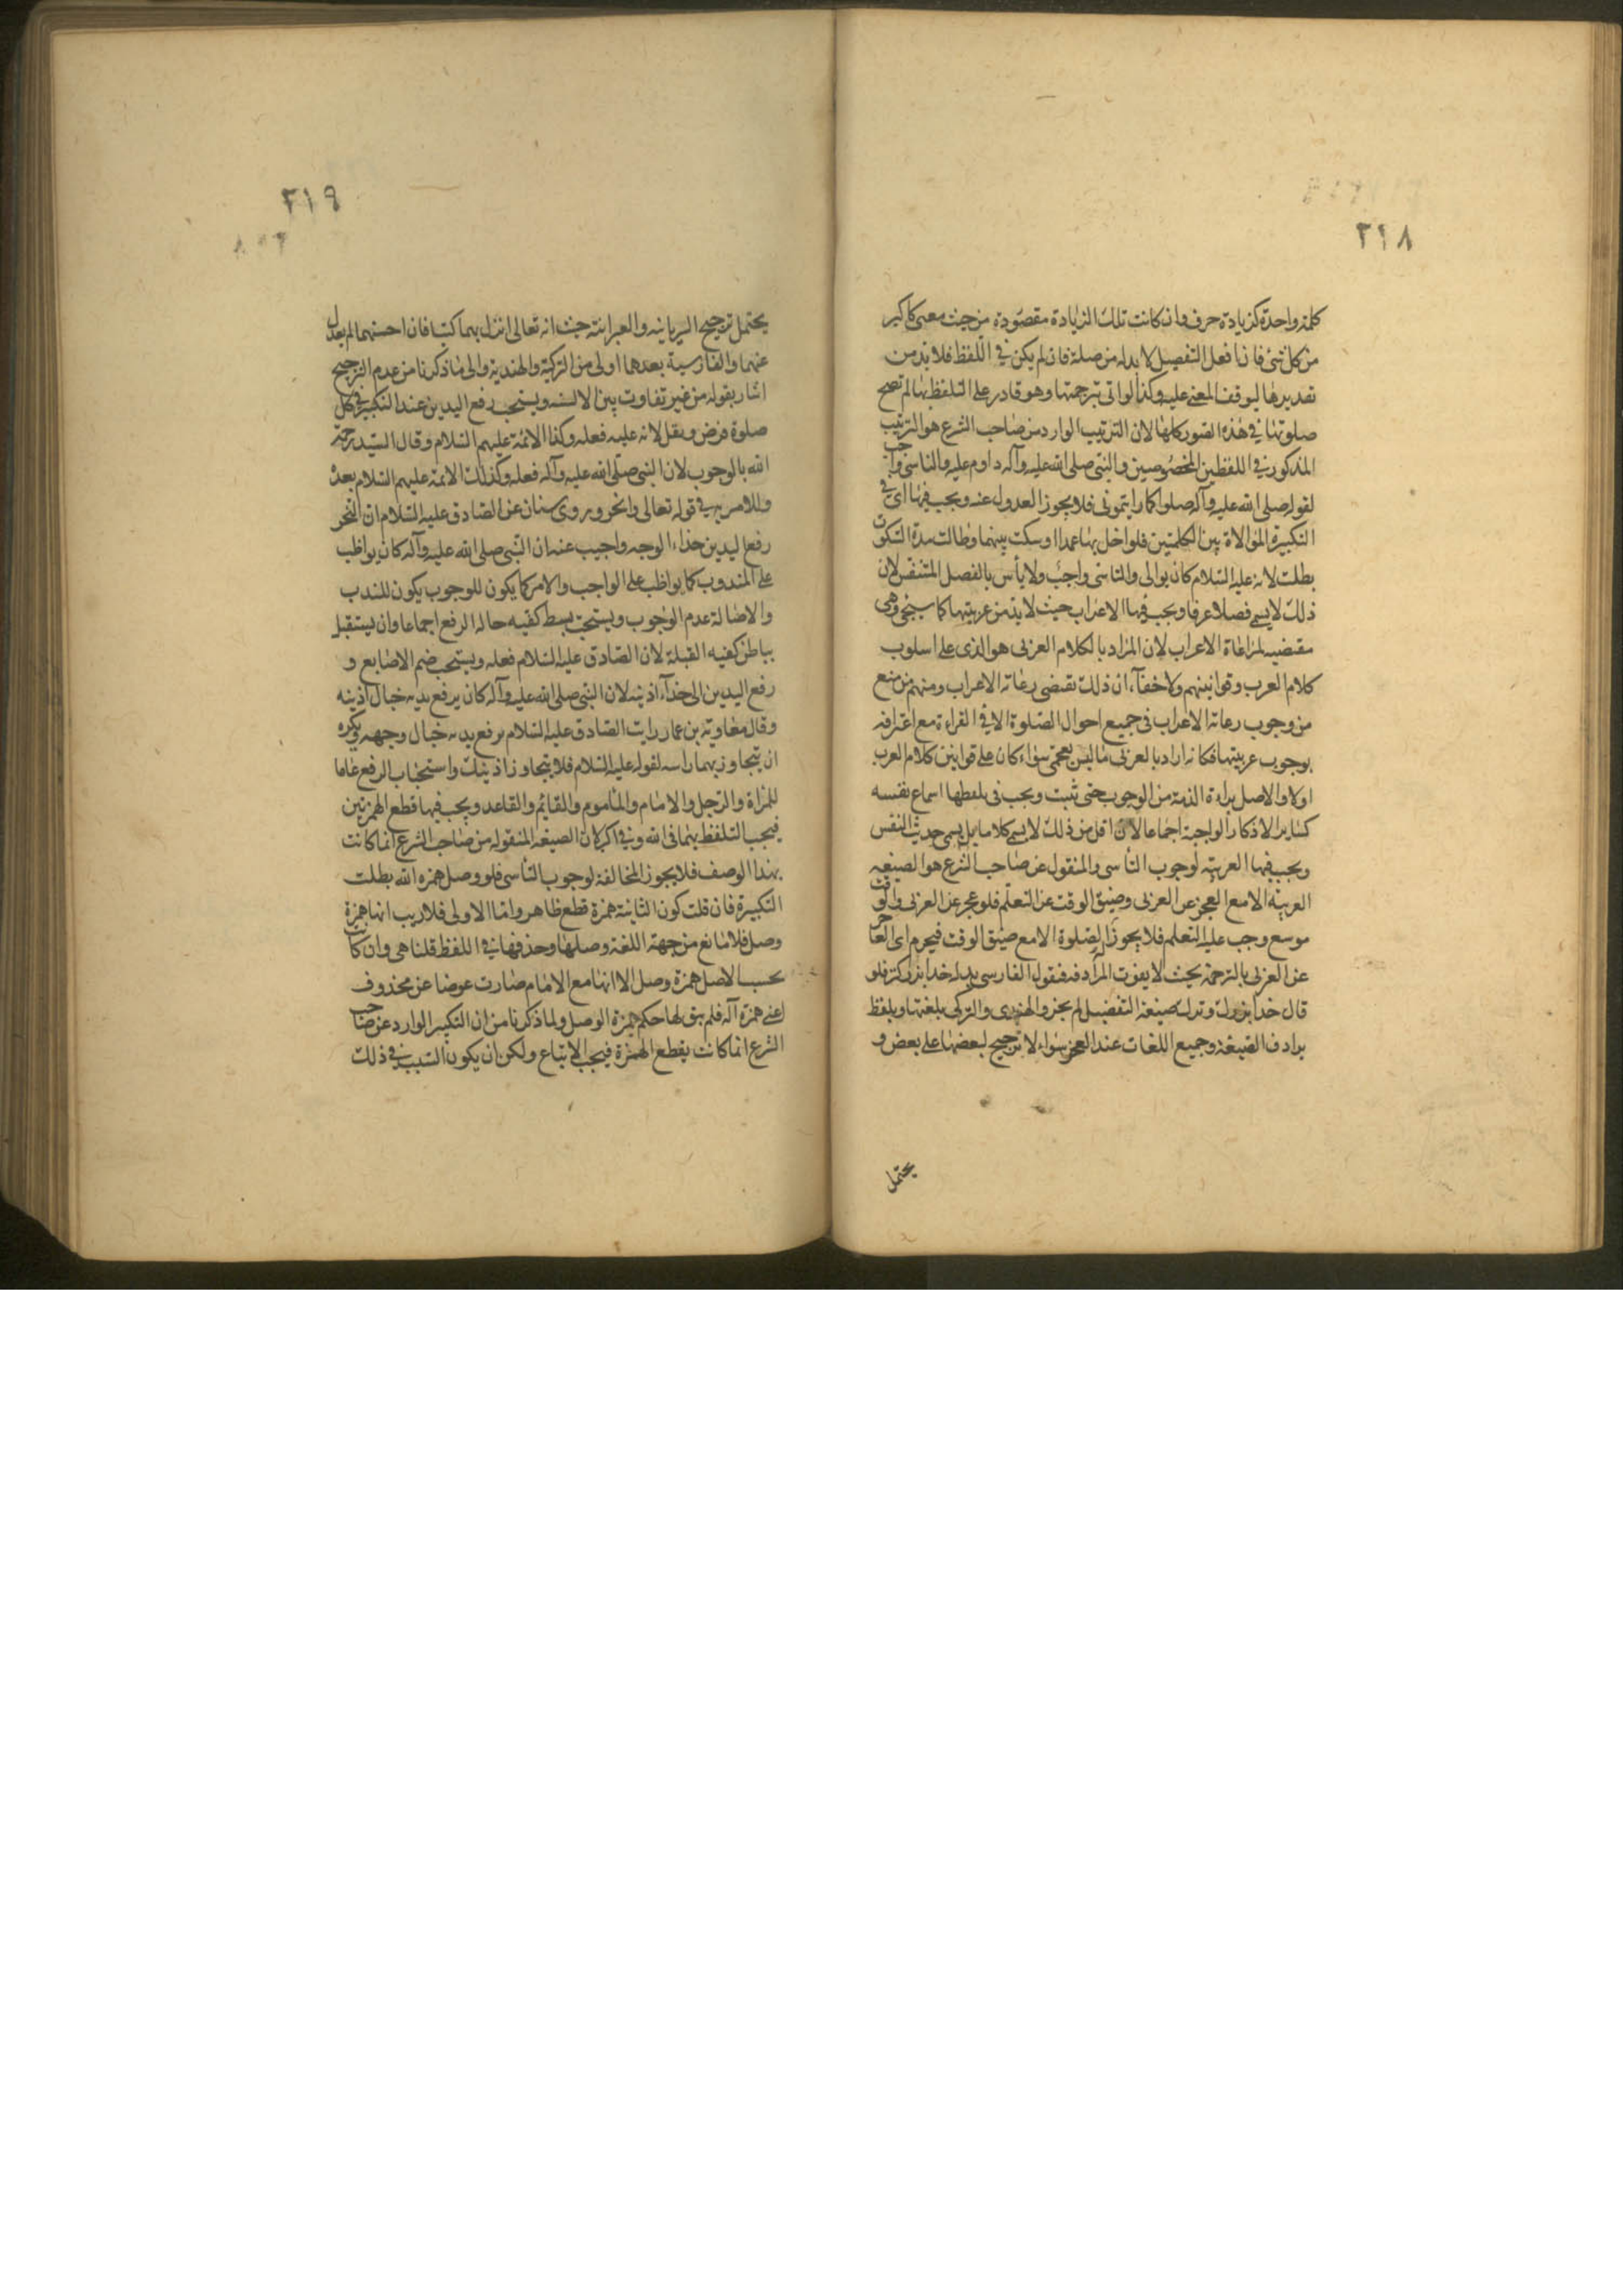 ٢١٨
كلمة واحدة كزيادة حرف وان كانت تلك الزيادة مقصودة من حيث معنى كاكبر
من كل شئ فان افعل التفضيل لا بد له من صلة فان لم يكن في اللفظ فلا بد من
تقديرها ليوقف المعنى عليه وكذا لو اتى بترجمتها وهو قادر على التلفظ بها لم تصح
صلوتها في هذه الصور كلها لان الترتيب الوارد من صاحب الشرع هو الترتيب
المذكور في اللفظين المخصوصين والنبي صلى الله عليه وآله داوم عليه والتاسى واجب
لقوله صلى الله عليه وآله صلوا كما رايتمونى فلا يجوز العدول عنه ويجب فيها اى في
التكبيرة الموالاة بين الكلمتين فلو اخل بها عمدا او سكت بينهما وطالت مدة السكوت
بطلت لانه عليه السلام كان يوالى والتاسى واجب ولا بأس بالفصل المتنفس لان
ذلك لا يسمى فصلا عرفا ويجب فيها الاعراب حيث لا بد من عربيتها كما سيجئ وهى
مقتضيه لمراعاة الاعراب لان المراد بالكلام العربى هو الذى على اسلوب
كلام العرب وقوانينهم ولا خفآء ان ذلك تقتضى رعاية الاعراب ومنهم من منع
من وجوب رعاية الاعراب فى جميع احوال الصلوة الا في القراءة مع اعترافه
بوجوب عربيتها فكانه اراد بالعربى ما ليس بعجمى سواء كان على قوانين كلام العرب
اولا والاصل براءة الذمة من الوجوب حتى ثبت ويجب فى تلفظها اسماع نفسه
كساير الاذكار الواجبة اجماعا لان اقل من ذلك لا يسمى كلاما بل يسمى حديث النفس
ويجب فيها العربية لوجوب التأسى والمنقول عن صاحب الشرع هو الصيغه
العربية الا مع العجز عن العربى وضيق الوقت عن التعلم فلو عجز عن العربى والوقت
موسع وجب عليه التعلم فلا يجوز الصلوة الا مع ضيق الوقت فيحرم اى العاجز
عن العربى بالترجمة بحيث لا يفوت المراد فيقول الفارسى بدله خدا بزركتر فلو
قال خدا بزرك وترك صيغة التفضيل لم يجز والهندى والتركى بلغتها ويلفظ
برادف الصيغة وجميع اللغات عند العجز سواء لا ترجيح لبعضها على بعض و
يحتمل
٢١٩
يحتمل ترجيح السريانيه والعبرانية حيث انه تعالى انزل بهما كتبا فان احسنهما لم يعدل
عنهما والفارسية بعدهما اولى من التركية والهندية والى ما ذكرنا من عدم الترجيح
اشار بقوله من غير تفاوت بين الالسنه ويستحب رفع اليدين عند التكبير في كل
صلوة فرض ونفل لانه عليه فعله وكذا الائمة عليهم السلام وقال السيد رحمة
الله بالوجوب لان النبى صلى الله عليه وآله فعله وكذلك الائمة عليهم السلام بعده
وللامر به فى قوله تعالى وانحر وبروى سنان عن الصادق عليه السلام ان النحر
رفع اليدين حذاء الوجه واجيب عنه ان النبى صلى الله عليه وآله كان يواظب
على المندوب كما يواظب على الواجب والامر كما يكون للوجوب يكون للندب
والاصالة عدم الوجوب ويستحب بسط كفيه حاله الرفع اجماعا وان يستقبل
بباطن كفيه القبلة لان الصادق عليه السلام فعله ويستحب ضم الاصابع و
رفع اليدين الى حذآء اذنيه لان النبى صلى الله عليه وآله كان يرفع يديه حيال اذنيه
وقال معاوية بن عمار رايت الصادق عليه السلام يرفع يديه حيال وجهه ويكره
ان يتجاوز بهما راسه لقوله عليه السلام فلا يتجاوز اذنيك واستحباب الرفع عاما
للمراة والرجل والامام والماموم والقائم والقاعد ويجب فيها قطع الهمزتين
فيجب التلفظ بهما فى الله وفي اكبر لان الصيغة المنقوله من صاحب الشرع انما كانت
بهذا الوصف فلا يجوز المخالفة لوجوب التأسى فلو وصل همزه الله بطلت
التكبيرة فان قلت كون الثانية همزة قطع ظاهر واما الاولى فلا ريب انها همزة
وصل فلا مانع من جهة اللغة وصلها وحذفها في اللفظ قلنا هى وان كانت
بحسب الاصل همزة وصل الا انها مع الامام صارت عوضا عن محذوف
اعنى همزة آله فلم يبق لها حكم همزة الوصل ولما ذكرنا من ان التكبير الوارد عن صاحب
الشرع انما كانت يقطع الهمزة فيجب الاتباع ولكن ان يكون السبب في ذلك